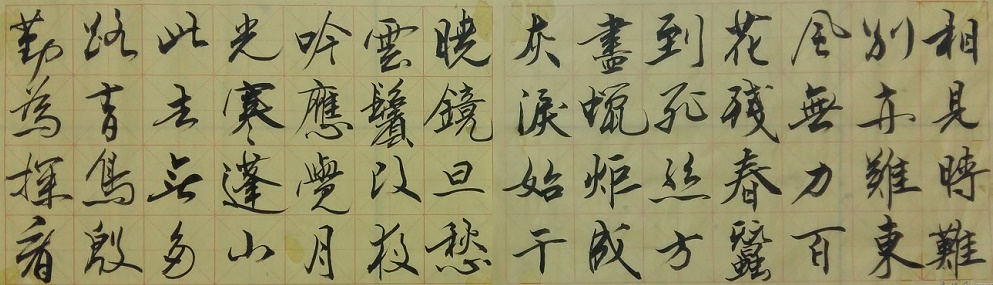 相見時難
別亦難東
風無力百
花殘春蠶
到死丝方
盡蠟炬成
灰淚始干
曉鏡旦愁
雲鬢改夜
吟應覺月
光寒蓬山
此去無多
路青鳥殷
勤為探看